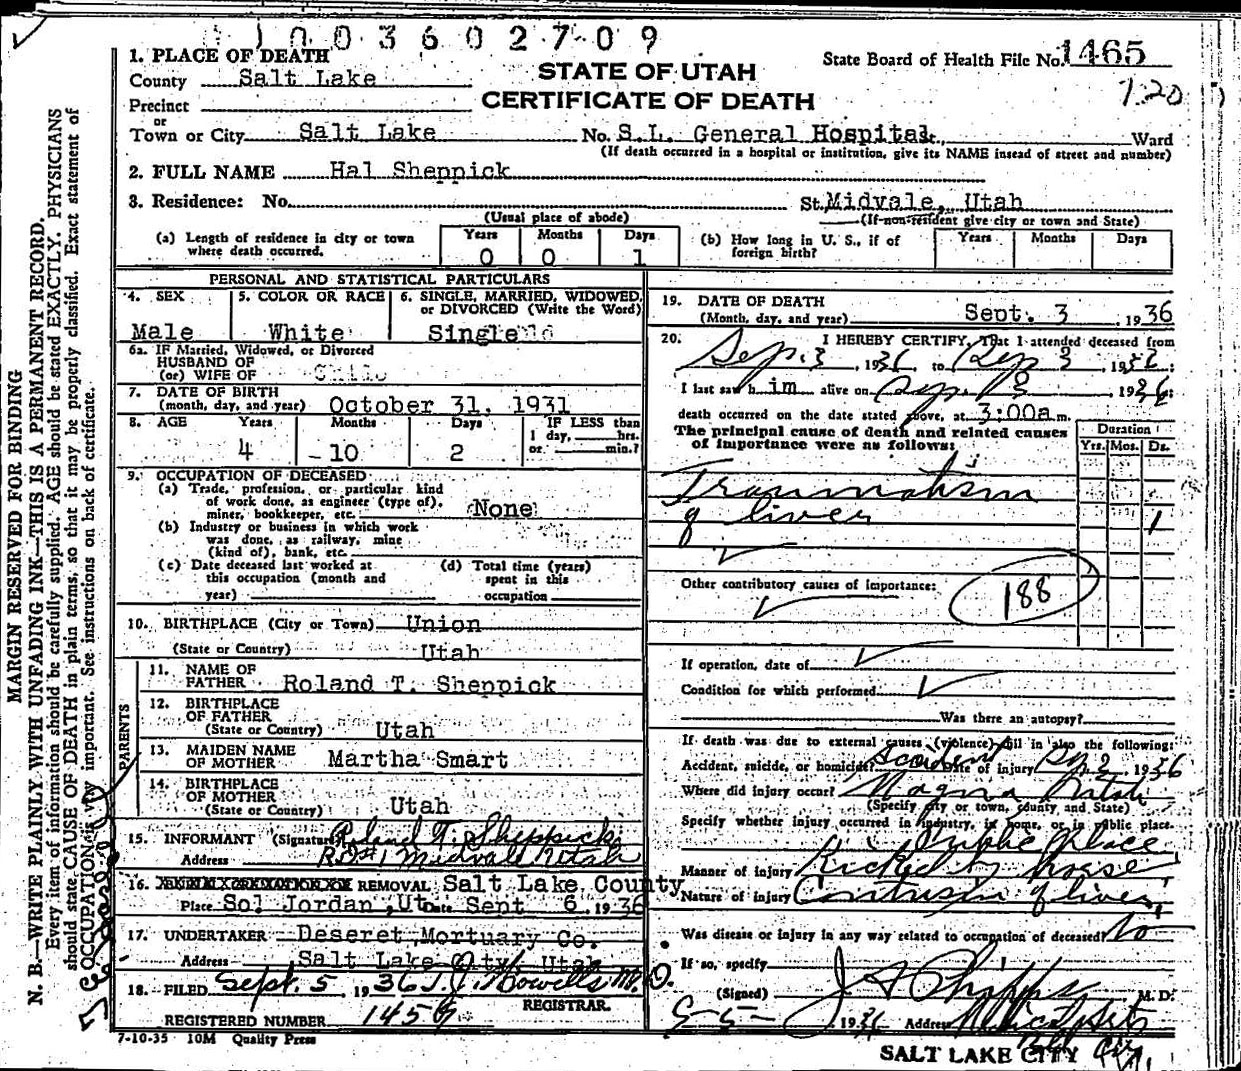 1003602709
1. PLACE OF DEATH
STATE OF UTAH
CERTIFICATE OF DEATH
State Board of Health File No. 1465
County Salt Lake
7.20
Precinct
or
Town or City Salt Lake No. S.L. General Hospital, Ward
(If death occurred in a hospital or institution, give its NAME insead of street and number)
2. FULL NAME Hal Sheppick
3. Residence: No. St. Midvale, Utah
(Usual place of abode) (If non-resident give city or town and State)
(a) Length of residence in city or town where death occurred. Years 0 Months 0 Days 1
(b) How long in U. S., if of foreign birth? Years Months Days
PERSONAL AND STATISTICAL PARTICULARS
4. SEX Male
5. COLOR OR RACE White
6. SINGLE, MARRIED, WIDOWED, or DIVORCED (Write the Word) Single
6a. IF Married, Widowed, or Divorced
HUSBAND OF
(or) WIFE OF Child
7. DATE OF BIRTH
(month, day, and year) October 31, 1931
8. AGE Years 4 Months 10 Days 2 IF LESS than 1 day, hrs. or min.?
9. OCCUPATION OF DECEASED
(a) Trade, profession, or particular kind
of work done, as engineer (type of),
miner, bookkeeper, etc. None
(b) Industry or business in which work
was done, as railway, mine
(kind of), bank, etc.
(c) Date deceased last worked at
this occupation (month and
year)
(d) Total time (years)
spent in this
occupation
10. BIRTHPLACE (City or Town) Union
(State or Country) Utah
PARENTS
11. NAME OF
FATHER Roland T. Sheppick
12. BIRTHPLACE
OF FATHER
(State or Country) Utah
13. MAIDEN NAME
OF MOTHER Martha Smart
14. BIRTHPLACE
OF MOTHER
(State or Country) Utah
15. INFORMANT (Signature) Roland T. Sheppick
Address R.D.#1 Midvale Utah
16. REMOVAL Salt Lake County
Place So. Jordan, Ut. Date Sept 6, 1936
17. UNDERTAKER Deseret Mortuary Co.
Address Salt Lake City, Utah
18. FILED Sept. 5 1936 T. J. Howells M.D.
REGISTRAR.
REGISTERED NUMBER 1459
7-10-35 10M Quality Press
19. DATE OF DEATH
(Month, day, and year) Sept. 3, 1936
20. I HEREBY CERTIFY, That I attended deceased from
Sep. 3, 1936 to Sep 3, 1936
I last saw him alive on Sep. 3, 1936;
death occurred on the date stated above, at 3:00a m.
The principal cause of death and related causes
of importance were as follows:
Duration
Yrs. Mos. Ds.
Traumatism
of liver 1
Other contributory causes of importance:
188
If operation, date of
Condition for which performed
Was there an autopsy?
If death was due to external causes (violence) fill in also the following:
Accident, suicide, or homicide? Accident Date of injury Sep. 2, 1936
Where did injury occur? Magna Utah
(Specify city or town, county and State)
Specify whether injury occurred in industry, in home, or in public place.
Public Place
Manner of injury Kicked by horse
Nature of injury Contusion of liver,
Was disease or injury in any way related to occupation of deceased? No
If so, specify
(Signed) J A Phipps M. D.
9-5-1936 Address Medical Arts
Bld City
SALT LAKE CITY
MARGIN RESERVED FOR BINDING
N. B.—WRITE PLAINLY WITH UNFADING INK—THIS IS A PERMANENT RECORD.
Every item of information should be carefully supplied. AGE should be stated EXACTLY. PHYSICIANS
should state CAUSE OF DEATH in plain terms, so that it may be properly classified. Exact statement of
OCCUPATION is very important. See instructions on back of certificate.